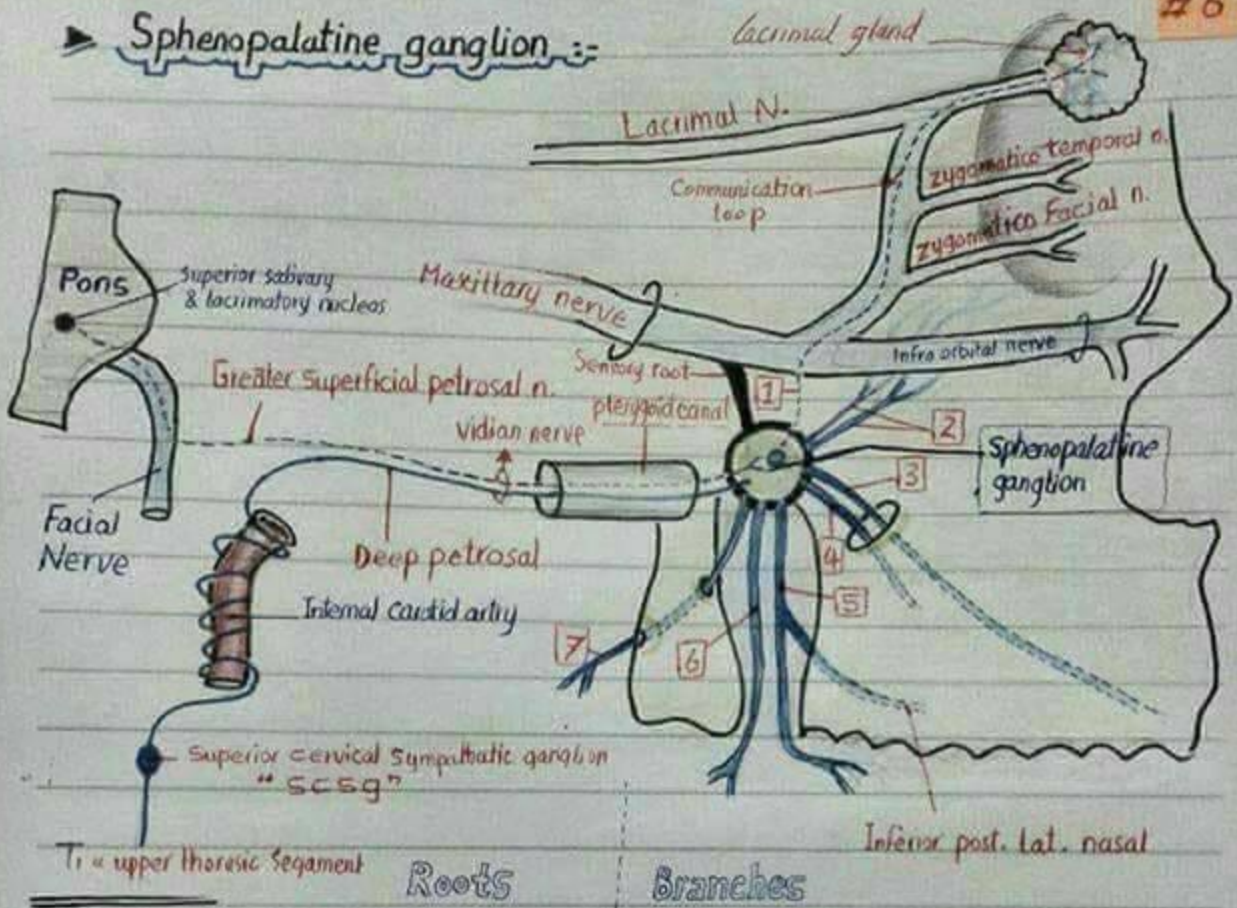 # 6
► Sphenopalatine ganglion :-
lacrimal gland
Lacrimal N.
zygomatico temporal n.
Communication
loop
zygomatico Facial n.
Pons
Superior salivary
& lacrimatory nucleos
Maxillary nerve
Infra orbital nerve
Sensory root
1
Greater Superficial petrosal n.
pterygoid canal
Vidian nerve
2
Sphenopalatine
ganglion
3
Facial
Nerve
Deep petrosal
4
Internal carotid artry
5
7
6
Superior cervical Sympathatic ganglion
"scsg"
Inferior post. Lat. nasal
T1 " upper thorasic Segament
Roots
Branches